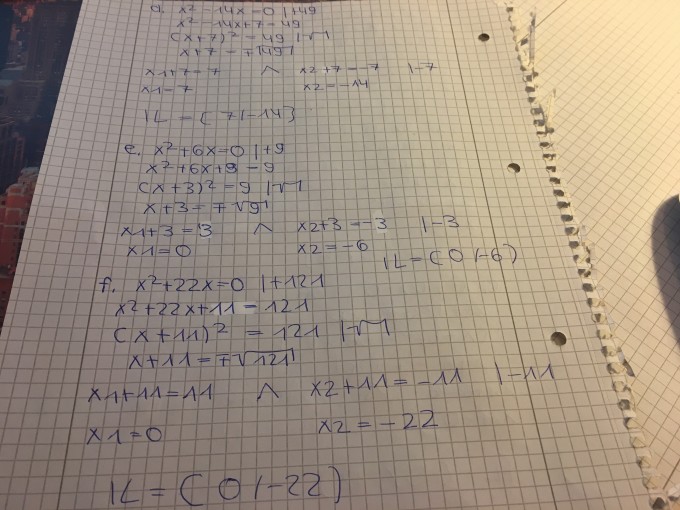 d. x² - 14x = 0 | +49
x² - 14x + 7 = 49
(x+7)² = 49 | √
x+7 = ∓√49
x1+7=7 ∧ x2+7=-7 |-7
x1=7 x2=-14
IL = { 7 / -14 }
e. x²+6x=0 | +9
x²+6x+9 = 9
(x+3)² = 9 | √
x+3 = ∓√9
x1+3 = 3 ∧ x2+3 = -3 | -3
x1=0 x2=-6
IL = ( 0 / -6 )
f. x²+22x=0 | +121
x²+22x+11 = 121
(x+11)² = 121 | √
x+11 = ∓√121
x1+11=11 ∧ x2+11 = -11 | -11
x1=0 x2 = -22
IL = ( 0 / -22 )